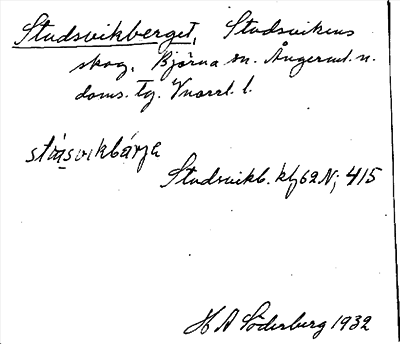 Studsvikberget, Studsvikens
skog, Björna sn. Ångerml. n.
doms. tg. Vnorrl. l.
stùsvikbárja
Studsvikb. kbl 62 N; 415
H A Söderberg 1932